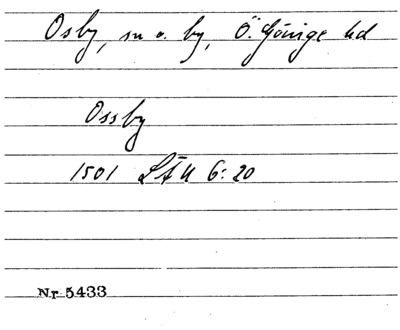 Osby, sn o. by, Ö. Göinge hd
Ossby
1501 LÅU 6:20
Nr 5433